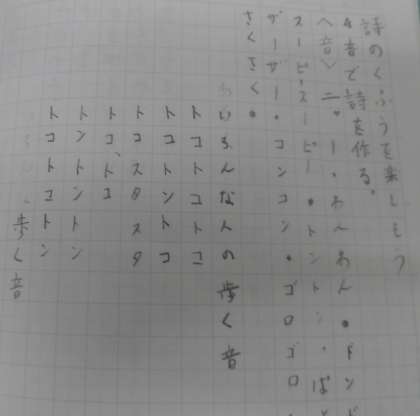 詩のくふうを楽しもう
4音で詩を作る。
スーピースーピー・トントン・
ザーザー・コンコン・ゴロゴロ
さくさく。
いろんな人の歩く音
トコトコトコ
トコトントコ
トコスタスタ
トコトコ
トントントン
トコトコトン
歩く音